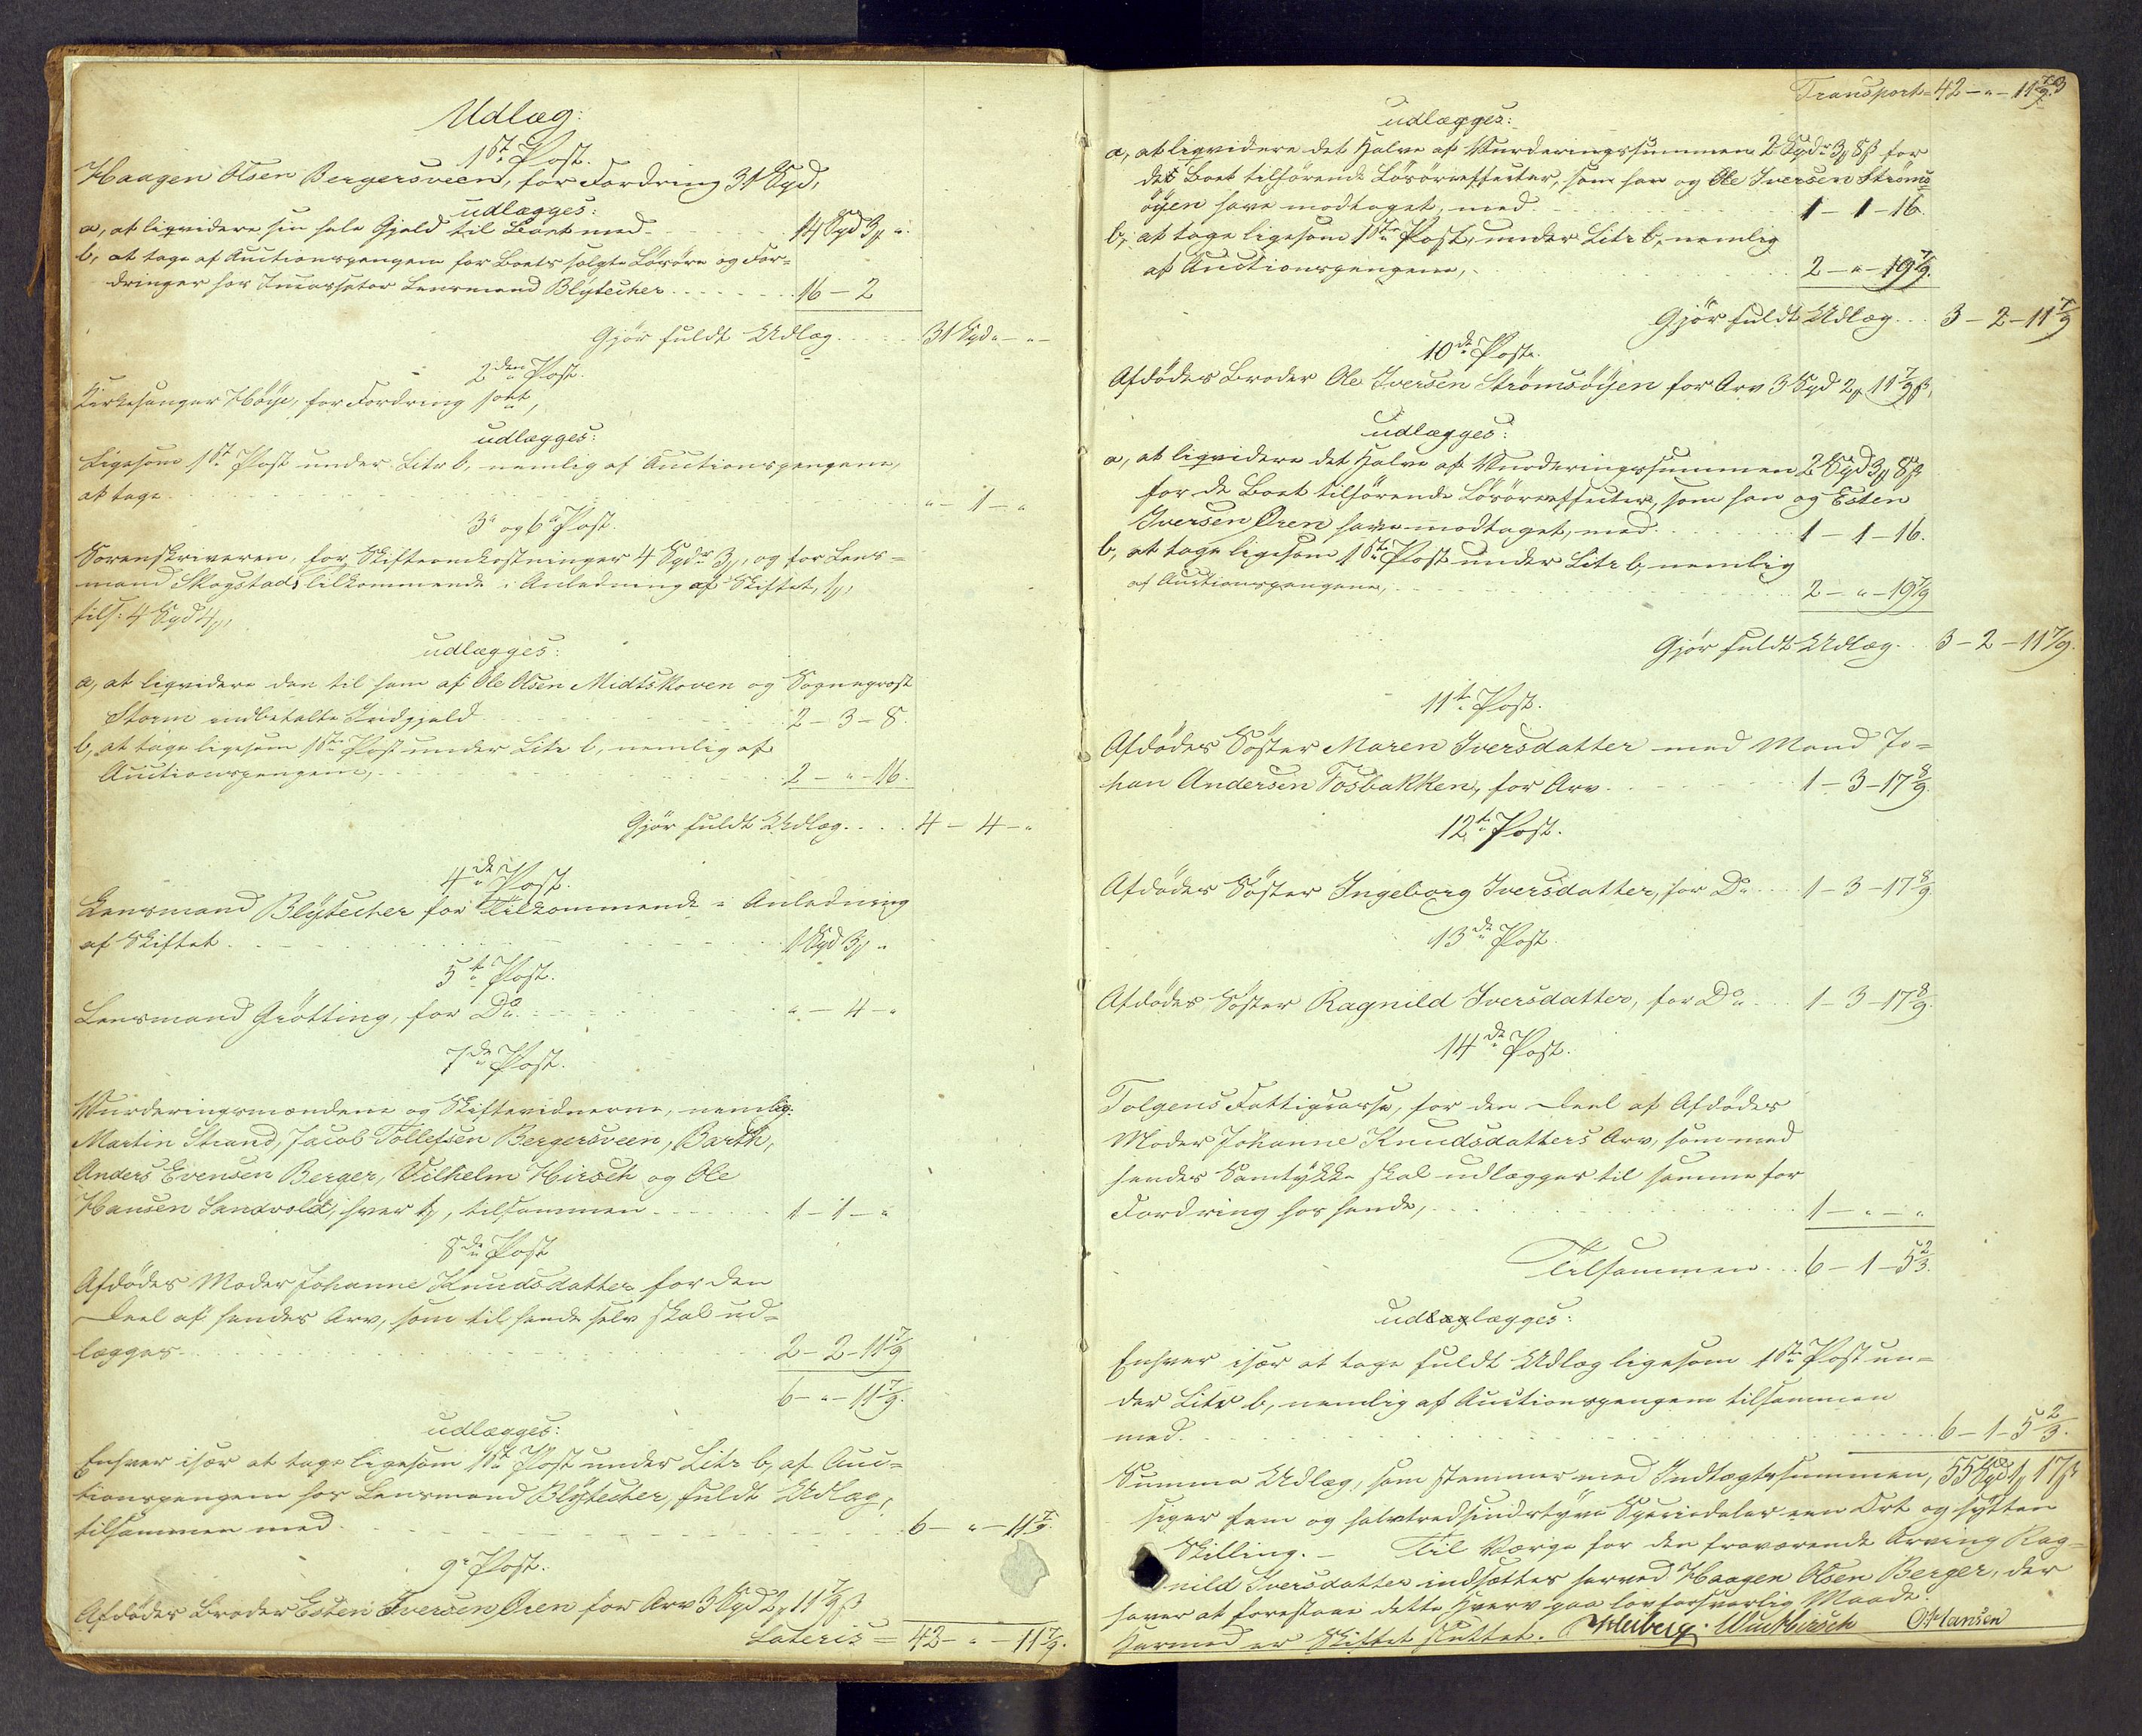 Udlæg:
1ste Post.
Haagen Olsen Bergersveen, for Fordring 31 Spd,
udlægges:
a, at liqvidere sin hele Gjæld til Boet med - - - 14 Spd 3 ℔ "
b, at tage af Auctionspengene for Boets solgte Lösöre og For-
dringer hos Incassator Lensmand Blÿtecher - - - 16 - 2
Gjör fuldt Udlæg - - - 31 Spd " - " -
2den Post.
Kirkesanger Höÿe, for Fordring
udlægges:
Ligesom 1ste Post under Litr b, nemlig af Auctionspengene,
at tage - - - " - 1 - "
3e og 6e Post.
Sorenskriveren, for Skifteomkostninger 4 Spdr 3 ℔, og for Lens-
mand Skogstads Tilkommende i Anledning af Skiftet, 1 ℔,
tils: 4 Spd 4 ℔,
udlægges:
a, at liqvidere den til ham af Ole Olsen Midtskoven og Sogneprest
Storm indbetalte Indgjæld - - - 2 - 3 - 8.
b, at tage ligesom 1ste Post under Litr b, nemlig af
Auctionspengene, - - - 2 - " - 16.
Gjör fuldt Udlæg - - - 4 - 4 - "
4de Post.
Lensmand Blÿtecher for Tilkommende i Anledning
af Skiftet - - - 1 Spd 3 ℔ "
5te Post.
Lensmand Grötting, for Do - - - " - 4 - "
7de Post.
Vurderingsmændene og Skiftevidnerne, nemlig:
Martin Strand, Jacob Tollefsen Bergersveen, Barth,
Anders Evensen Berger, Vilhelm Hirsch og Ole
Hansen Sandvold, hver 1 ℔, tilsammen - - - 1 - 1 - "
8de Post
Afdödes Moder Johanne Knudsdatter for den
Deel af hendes Arv, som til hende selv skal ud-
lægges - - - 2 - 2 - 11 7/9
6 - " - 11 7/9.
udlægges:
Enhver især at tage ligesom 1ste Post under Litr b, af Auc-
tionspengene hos Lensmand Blÿtecher, fuldt Udlæg,
tilsammen med - - - 6 - " - 11 7/9.
9e Post.
Afdödes Broder Esten Iversen Ören for Arv 3 Spd 2 ℔ 11 7/9 ß
Lateris = 42 - " - 11 7/9.
Transport = 42 - " - 11 7/9 ß
udlægges:
a, at liqvidere det Halve af Vurderingssummen 2 Spdr 3 ℔ 8 ß for
det Boet tilhörende Lösöreeffecter, som han og Ole Iversen Ströms-
öÿen have modtaget, med - - - 1 - 1 - 16.
b, at tage ligesom 1ste Post, under Litr b, nemlig
af Auctionspengene, - - - 2 - " - 19 7/9.
Gjör fuldt Udlæg - - - 3 - 2 - 11 7/9
10de Post.
Afdödes Broder Ole Iversen Strömsöÿen for Arv 3 Spd 2 ℔ 11 7/9 ß,
udlægges:
a, at liqvidere det Halve af Vurderingssummen 2 Spd 3 ℔ 8 ß
for de Boet tilhörende Lösöreeffecter, som han og Esten
Iversen Ören have modtaget, med - - - 1 - 1 - 16.
b, at tage ligesom 1ste Post under Litr b, nemlig
af Auctionspengene, - - - 2 - " - 19 7/9
Gjör fuldt Udlæg - - 3 - 2 - 11 7/9.
11te Post.
Afdödes Söster Maren Iversdatter med Mand Jo-
han Andersen Fosbakken, for Arv - - - 1 - 3 - 17 8/9.
12te Post.
Afdödes Söster Ingeborg Iversdatter, for Do - - - 1 - 3 - 17 8/9
13de Post.
Afdödes Söster Ragnild Iversdatter, for Do - - - 1 - 3 - 17 8/9.
14de Post.
Tolgens Fattigcasse, for den Deel af Afdödes
Moder Johanne Knudsdatters Arv, som med
hendes Samtÿkke skal udlægges til samme for
Fordring hos hende, - - - 1 - " - "
Tilsammen - - - 6 - 1 - 5 2/3.
udlæglægges:
Enhver især at tage fuldt Udlæg ligesom 1ste Post un-
der Litr b, nemlig af Auctionspengene tilsammen
med - - - 6 - 1 - 5 2/3.
Summa Udlæg, som stemmer med Indtægtssummen, 55 Spd 1 ℔ 17 ß
siger fem og halvtredsindstÿve Speciedaler een Ort og sÿtten
Skilling. - Til Værge for den fraværende Arving Rag-
nild Iversdatter indsættes herved Haagen Olsen Berger, der
haver at forestaae dette Hverv paa lovforsvarlig Maade.
Hermed er Skiftet sluttet. Heiberg. Wm Hirsch O Hansen